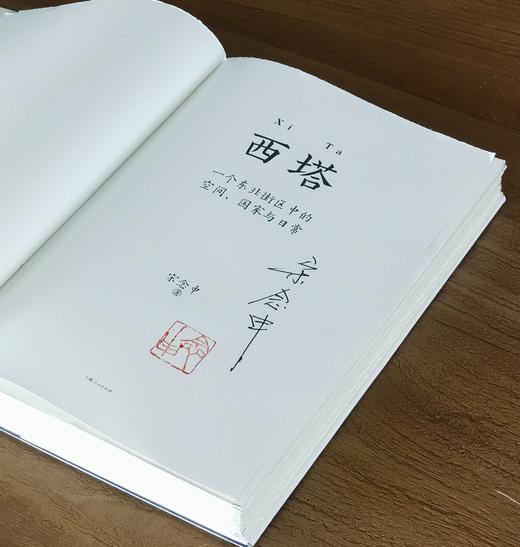 Xi Ta
西塔
一个东北街区中的
空间、国家与日常
宋念申
宋念申 著
念申
上海人民出版社